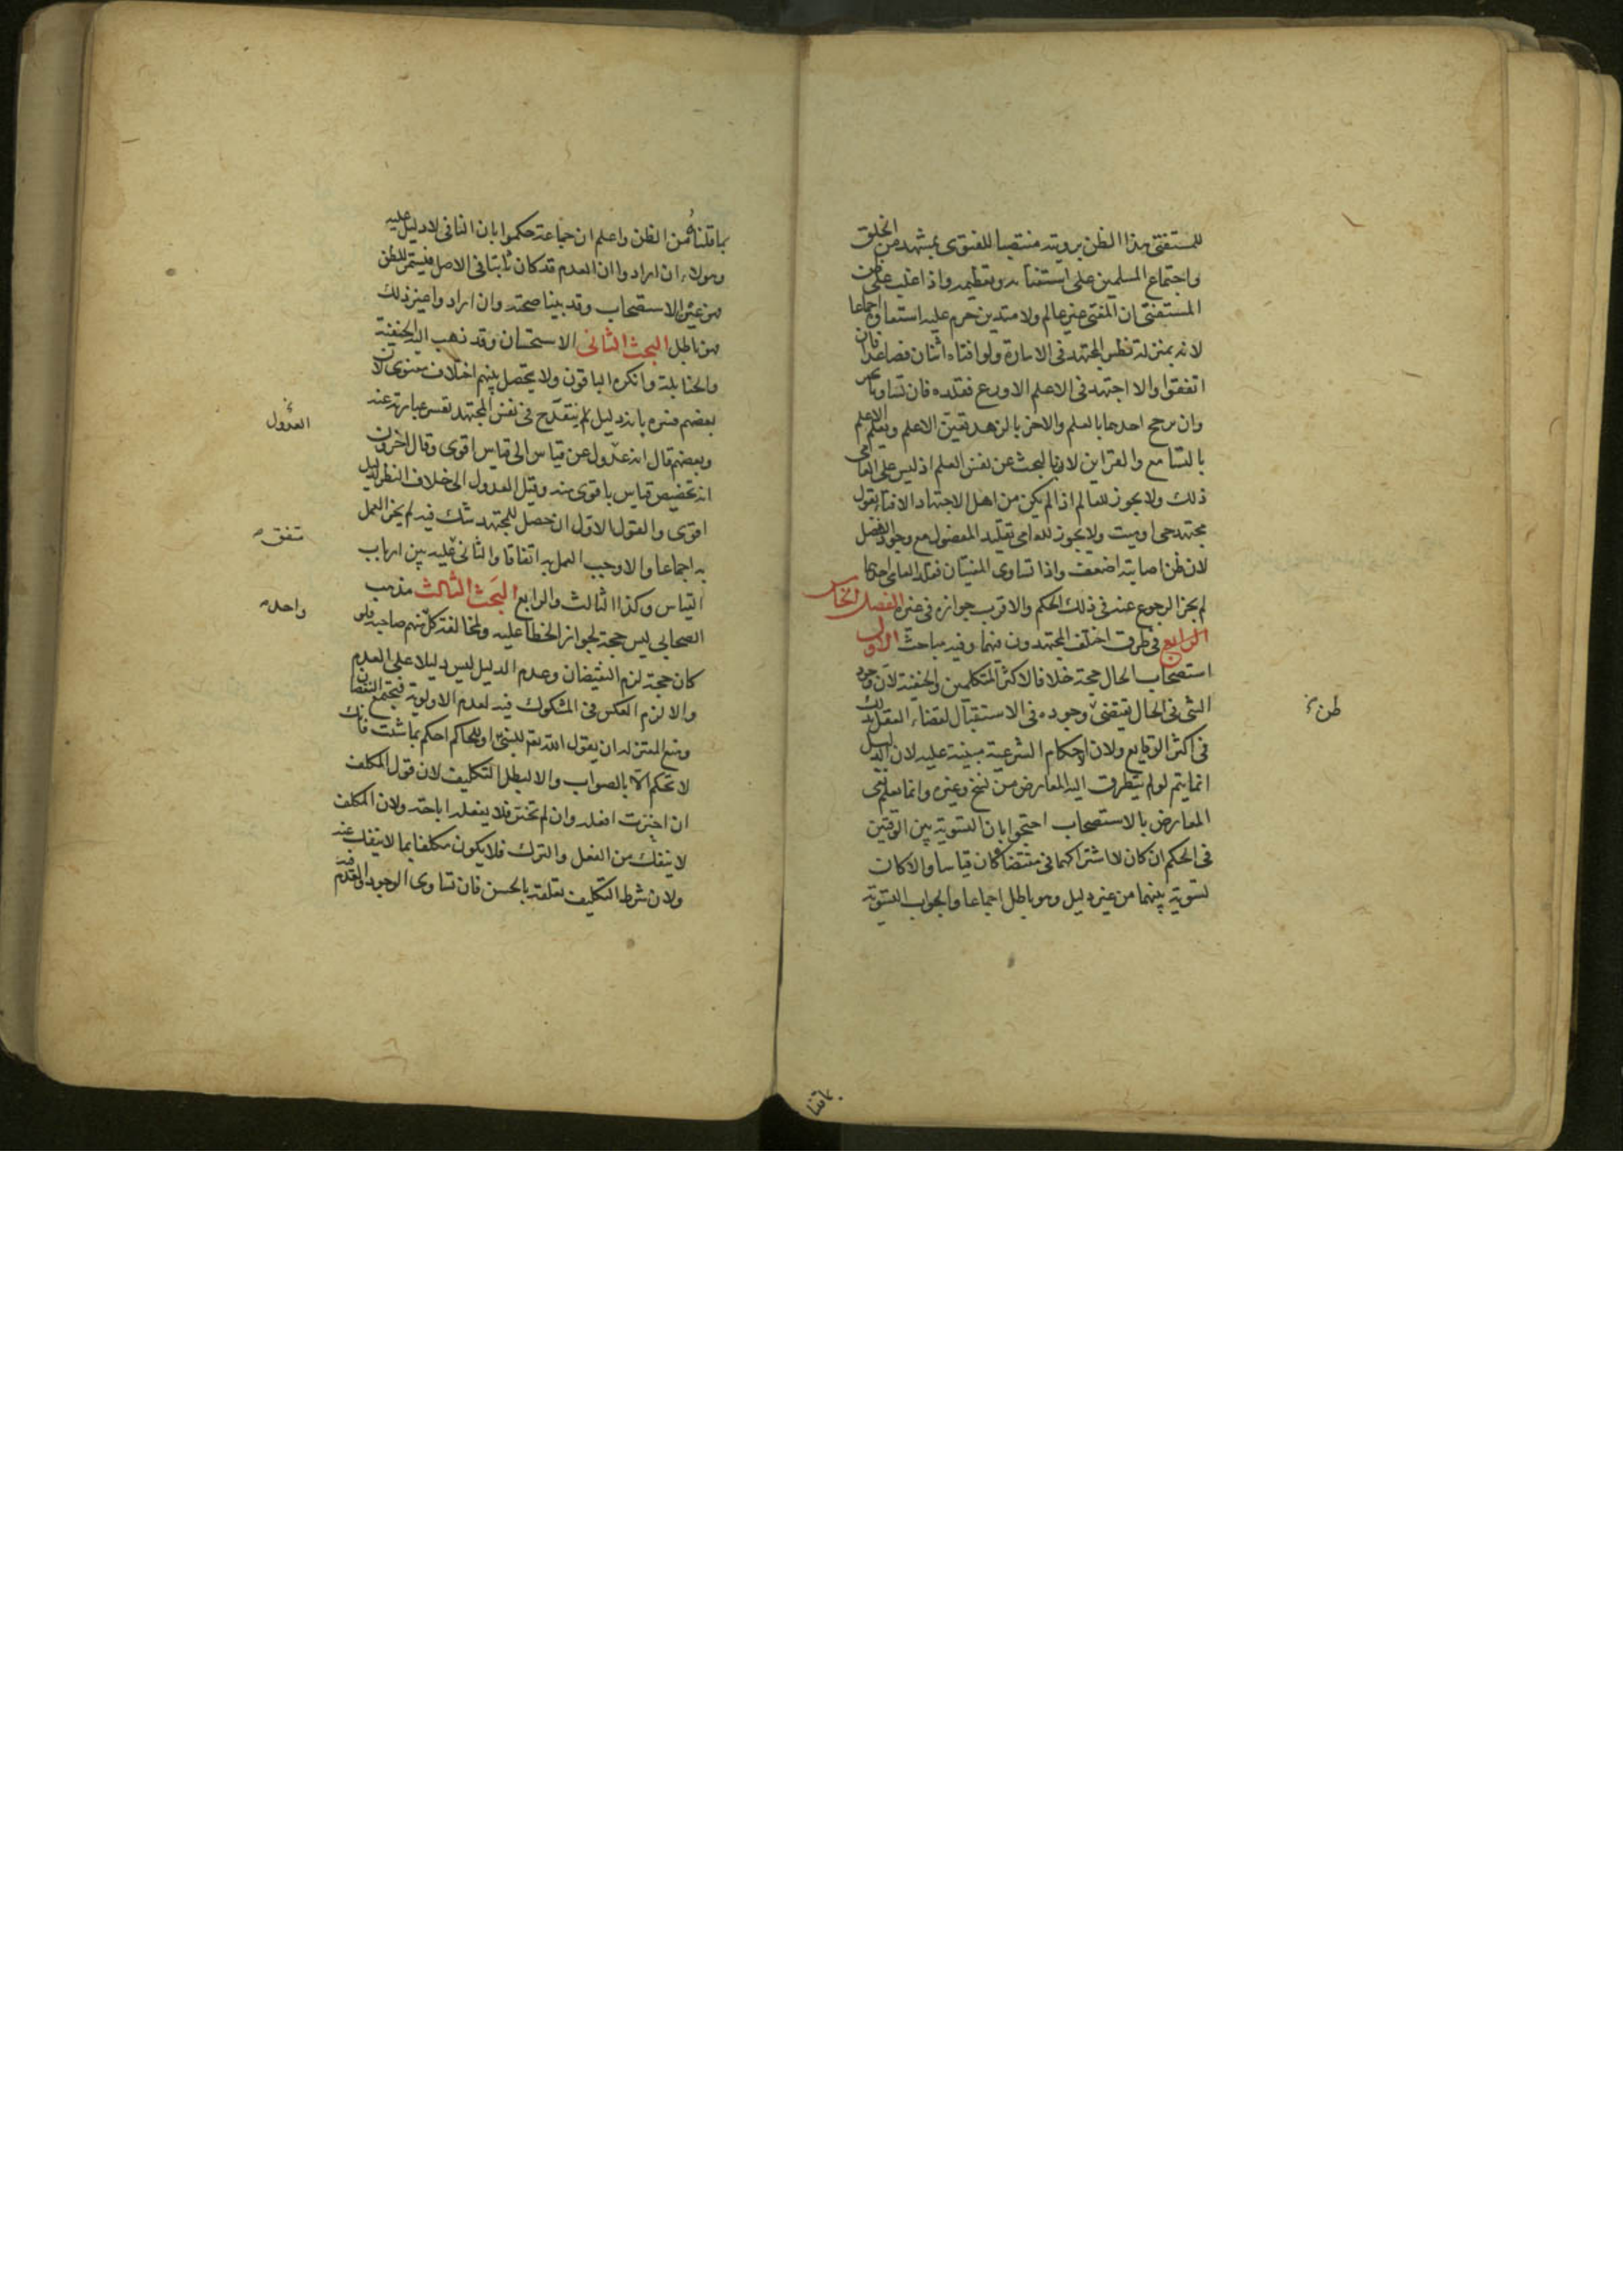 للمستفتى هذا الظن برويته منتصبا للفتوى بمشهد من الخلق
واجتماع المسلمين على استفتائه وتعظيمه واذا غلب على ظن
المستفتى ان المفتى غير عالم ولا متدين حرم عليه استفتاوه اجماعا
لانه بمنزلة نظر المجتهد فى الامارة ولو افتاه اثنان فصاعدا فان
اتفقوا والا اجتهد فى الاعلم الاورع فقلده فان تساويا تخير
وان رجح احدهما بالعلم والاخر بالزهد تعين الاعلم ويعلم الاعلم
بالتسامع والقراين لا بالبحث عن نفس العلم اذ ليس على العامى
ذلك ولا يجوز للعالم اذا لم يكن من اهل الاجتهاد الافتاء بقول
مجتهد حى او ميت ولا يجوز للعامى تقليد المفضول مع وجود الافضل
لان ظن اصابته اضعف واذا تساوى المفتيان فقلد العامى احدهما
لم يجز الرجوع عنه فى ذلك الحكم والاقرب جوازه فى غيره الفصل الخامس
الرابع فى طرق اختلف المجتهدون فيها وفيه مباحث الاول
استصحاب الحال حجة خلافا لاكثر المتكلمين والحنفية لان وجود
الشى فى الحال يقتضى وجوده فى الاستقبال لقضاء العقل بذلك
ظن
فى اكثر الوقايع ولان الاحكام الشرعية مبنية عليه لان الدليل
انما يتم لو لم يتطرق اليه المعارض من نسخ وغيره وانما يعلم نفى
المعارض بالاستصحاب احتجوا بان التسوية بين الوقتين
فى الحكم ان كان لاشتراكهما فى مقتضاه كان قياسا والا كان
تسوية بينهما من غير دليل وهو باطل اجماعا والجواب التسوية
بما قلناه
بما قلناه من الظن واعلم ان جماعة حكموا بان النافى لا دليل عليه
وهولاء ان ارادوا ان العدم قد كان ثابتا فى الاصل فيستمر للظن
فهو عين الاستصحاب وقد بينا صحته وان ارادوا غير ذلك
فهو باطل البحث الثانى الاستحسان وقد ذهب اليه الحنفية
والحنابلة وانكره الباقون ولا يتحصل بينهم اختلاف معنوى لان
بعضهم فسره بانه دليل ينقدح فى نفس المجتهد تعسر عبارته عنه
العدول
وبعضهم قال انه عدول عن قياس الى قياس اقوى وقال اخرون
انه تخصيص قياس باقوى منه وقيل العدول الى خلاف النظر لدليل
اقوى والقول الاول ان حصل للمجتهد شك فيه لم يجز العمل
متفق
به اجماعا والا وجب العمل به اتفاقا والثانى عليه بين ارباب
القياس وكذا الثالث والرابع البحث الثالث مذهب
واحد
الصحابى ليس حجة لجواز الخطأ عليه ولمخالفة كل منهم صاحبه فلو
كان حجة لزم النقيضان وعدم الدليل ليس دليلا على العدم
والا لزم العكس فى المشكوك فيه لعدم الاولوية فيجتمع النقيضان
ومنع المعتزلة ان يقول الله تع للنبى او للحاكم احكم بما شئت فانك
لا تحكم الا بالصواب والا لبطل التكليف لان قول المكلف
ان اخترت افعله وان لم تختر فلا يفعله اباحة ولان المكلف
لا ينفك من الفعل والترك فلا يكون مكلفا بما لا ينفك عنه
ولان شرط التكليف تعلقه بالحسن فان تساوى الوجود والعدم